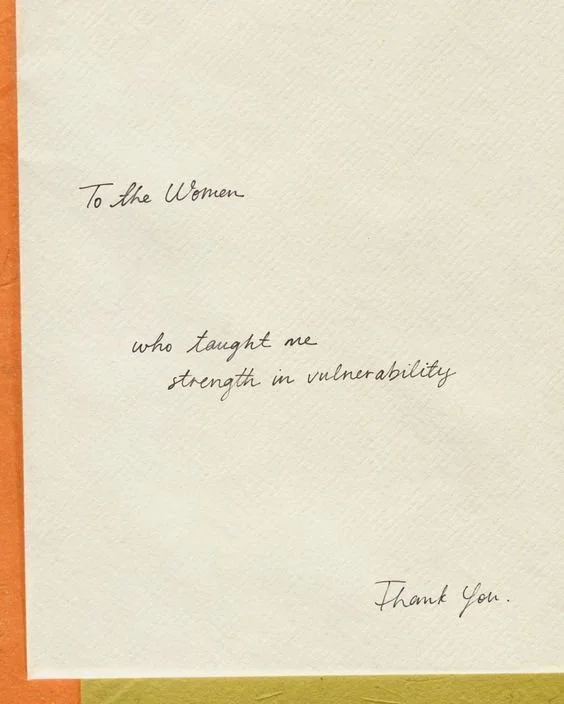 To the Women
who taught me
strength in vulnerability
Thank You.